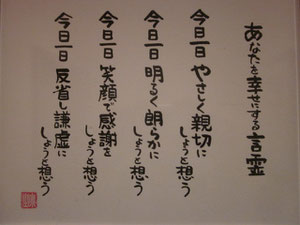 あなたを幸せにする言霊
今日一日 やさしく親切に
しようと想う
今日一日 明るく朗らかに
しようと想う
今日一日 笑顔で感謝を
しようと想う
今日一日 反省し謙虚に
しようと想う